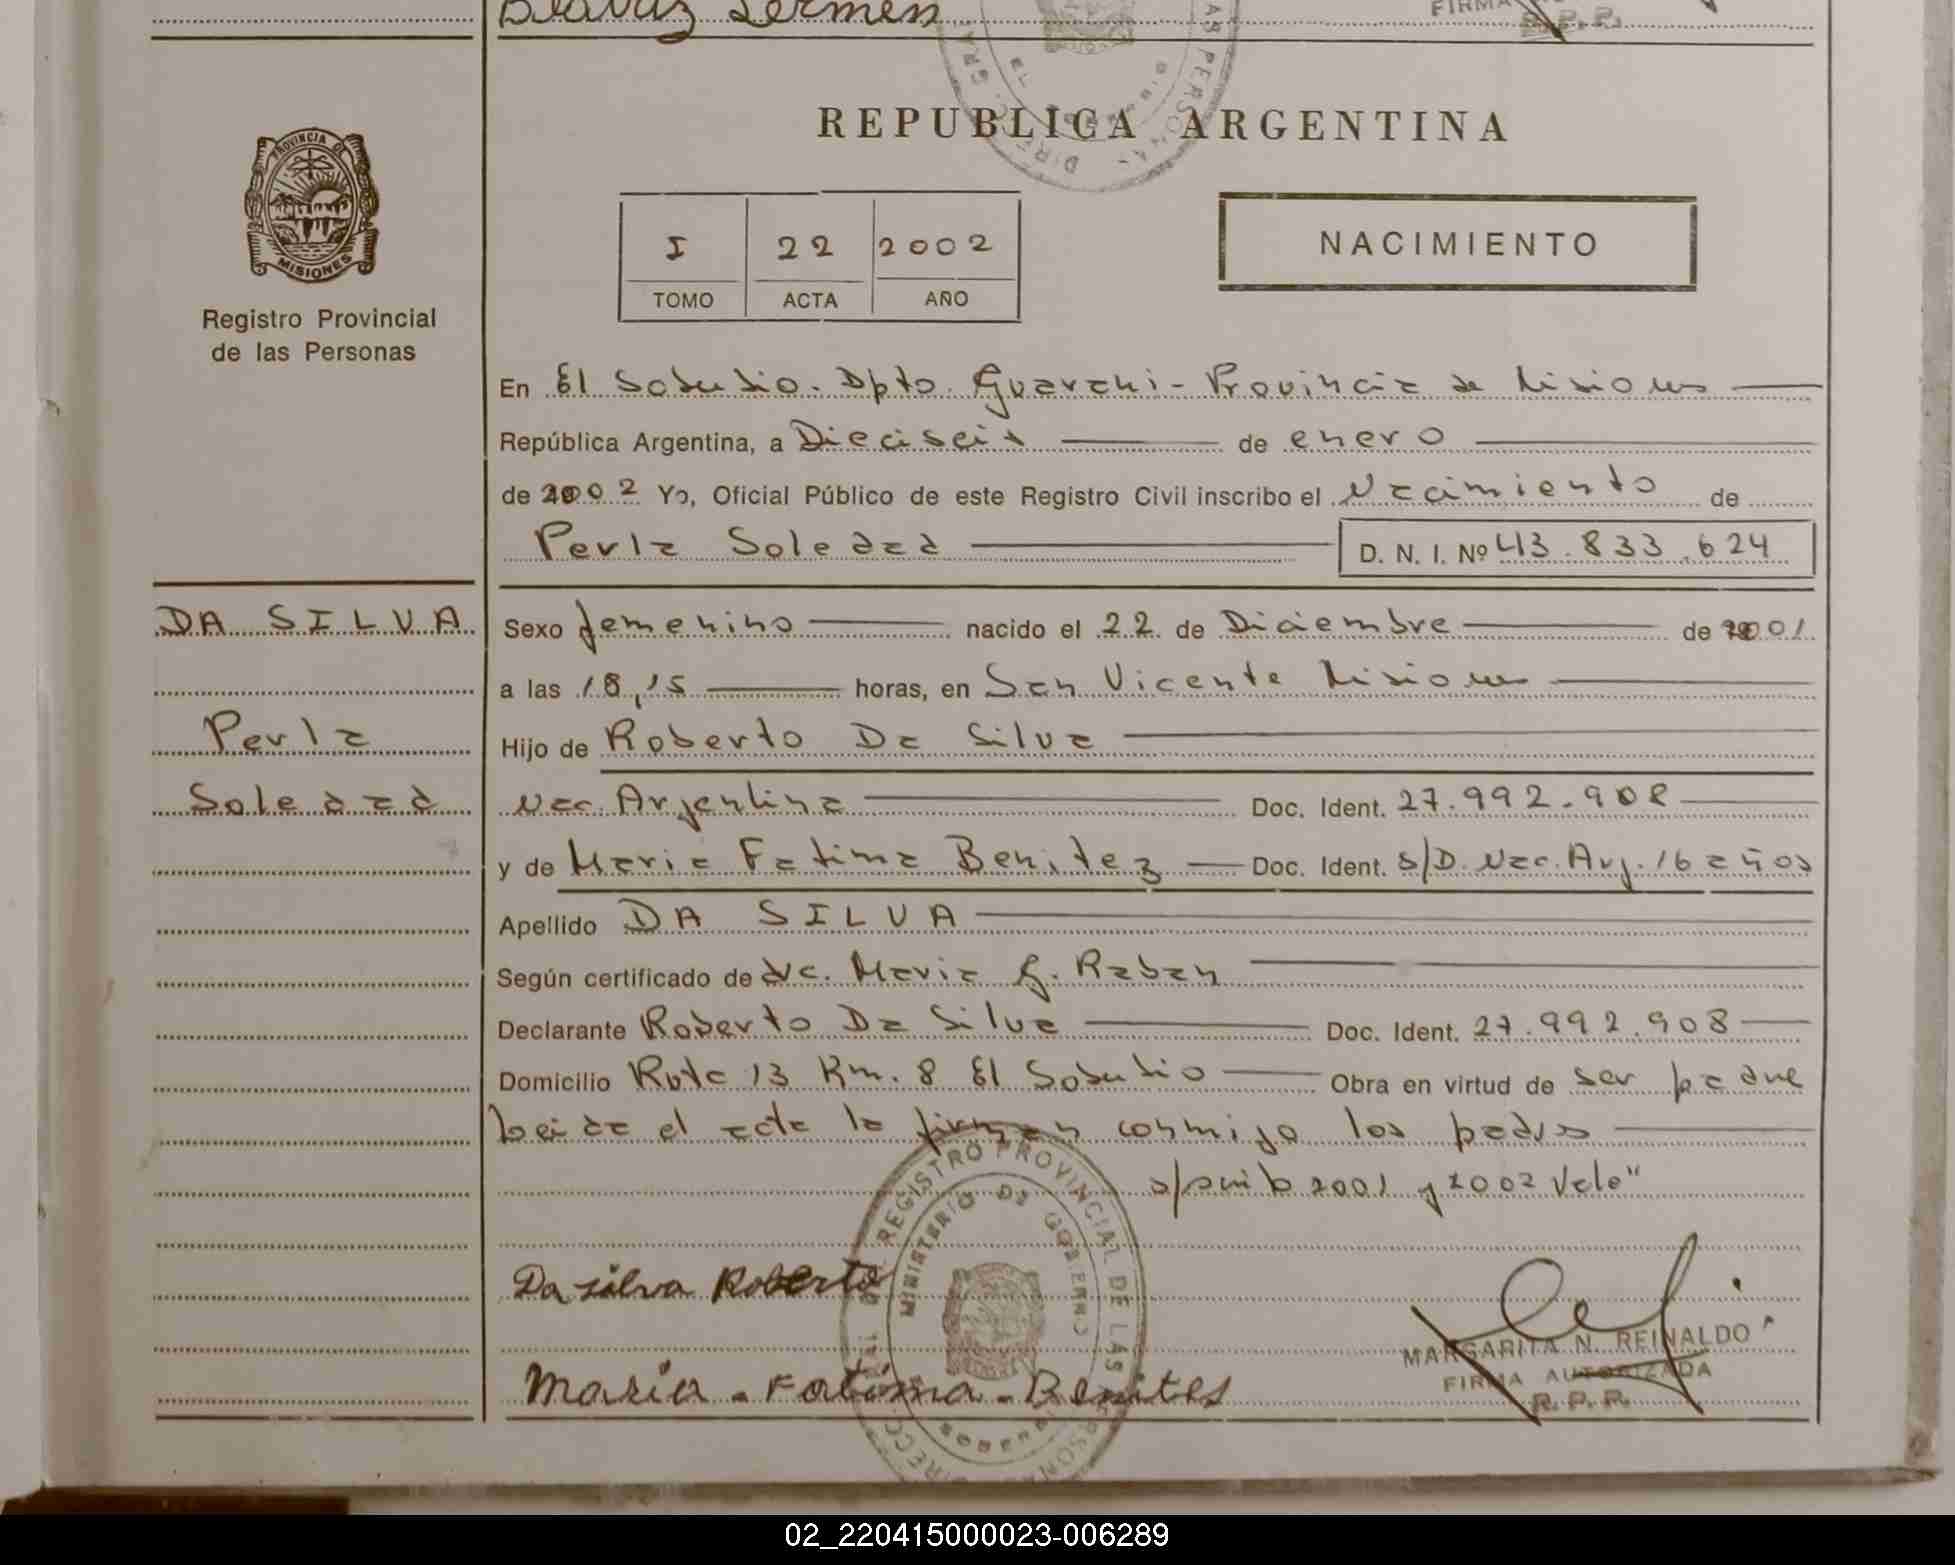 Beatriz Lermen
FIRMA
R. P. P.
REPUBLICA ARGENTINA
PROVINCIA DE
MISIONES
Registro Provincial
de las Personas
I 22 2002
TOMO ACTA AÑO
NACIMIENTO
En El Soberbio. Dpto. Guarani - Provincia de Misiones
República Argentina, a Dieciseis de enero
de 2002 Yo, Oficial Público de este Registro Civil inscribo el Nacimiento de
Perla Soledad D. N. I. Nº 43.833.624
DA SILVA
Perla
Soledad
Sexo femenino nacido el 22 de Diciembre de 2001
a las 18,15 horas, en San Vicente Misiones
Hijo de Roberto Da Silva
Nac. Argentina Doc. Ident. 27.992.908
y de Maria Fatima Benitez Doc. Ident. S/D. Nac. Arg. 16 años
Apellido DA SILVA
Según certificado de dra. Maria G. Raban
Declarante Roberto Da Silva Doc. Ident. 27.992.908
Domicilio Ruta 13 Km. 8 El Soberbio Obra en virtud de ser padre
Leida el acta la firman conmigo los padres
2001 y 2002 Vale"
REGISTRO PROVINCIAL DE LAS PERSONAS
MINISTERIO DE GOBIERNO
Da silva Roberto
Maria - Fatima - Benites
MARGARITA N. REINALDO
FIRMA AUTORIZADA
R. P. P.
02_220415000023-006289